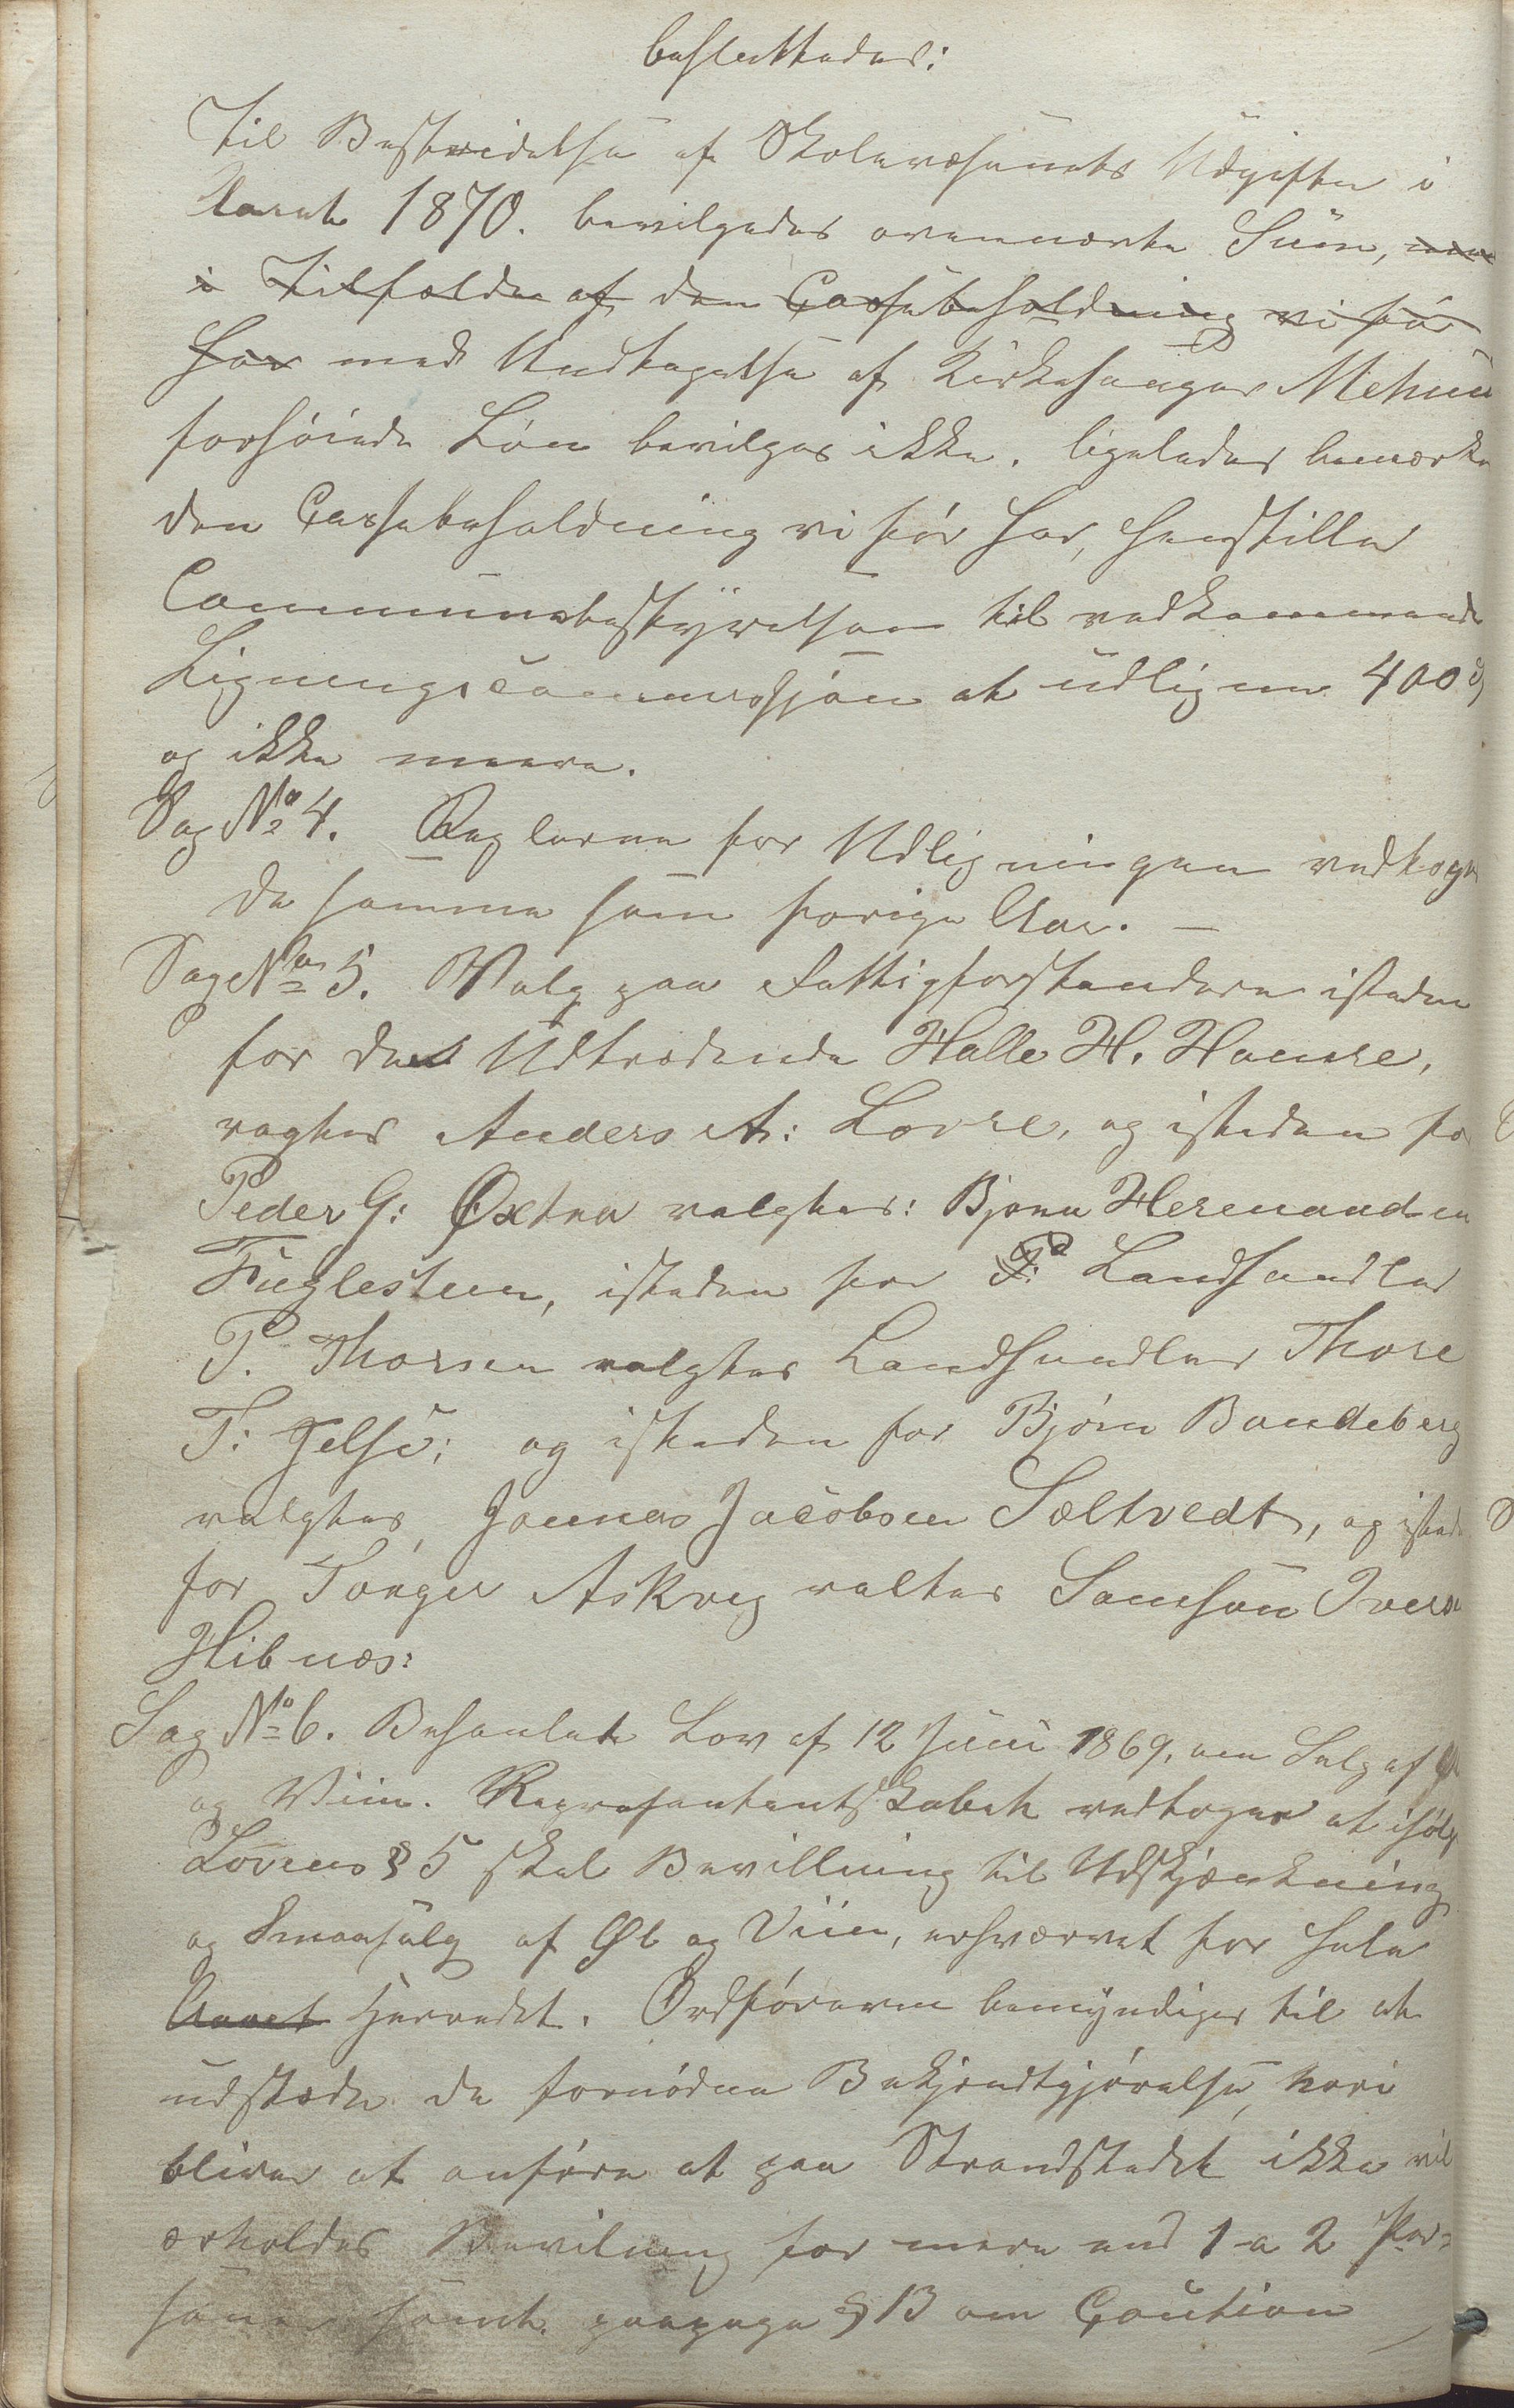 besluttedes:
Til Bestridelse af Skolevæsenets Udgifter i
Aaret 1870. bevilgedes ovennævnte Sum, men
i Tilfælde af den Cassebeholdning vi før
har med Undtagelse af Kirkesanger
forhøiede Løn bevilges ikke. ligeledes bemærkes
den Cassebeholdning vi før har, henstiller
Communebestÿrelsen til vedkommende
Ligningscommissjon at udligne 400
og ikke meere.
Sag No 4. Reglerne for Udligningen vedtoges
de samme som forige Aar. —
Sag No 5. Valg paa Fattigforstandere isteden
for den Udtrædende Halle H. Hamre,
valgtes Anders A: Lovre, og isteden for
Peder G: Øxtra valgtes: Bjørn Heremandsen
Fuglesteen, isteden for Landhandler
P. Thorsen valgtes Landhandler Thore
T: Jelsè; og isteden for Bjørn Bandeberg
valgtes, Jonnas Jacobsen Sæltvedt, og isteden
for Torger Askvig valtes Samson Iversen
Hibnæs:
Sag No 6. Behanlet Lov af 12 Juni 1869, om Salg af Øl
og Viin. Representantskabet vedtoges at ifølge
Lovens § 5 skal Bevillning til Udskjænkning
og Smaasalg af Øl og Viin, erhværvet for hele
Aaret Herredet. Ordføreren bemÿndiges til at
udstæde de fornødne Bekjendtgjørelse, hvori
bliver at anføre at paa Strandstedet ikke vil
ærholdes Bevilning for mere end 1 a 2 Per-
soner samt paapege § 13 om Caution